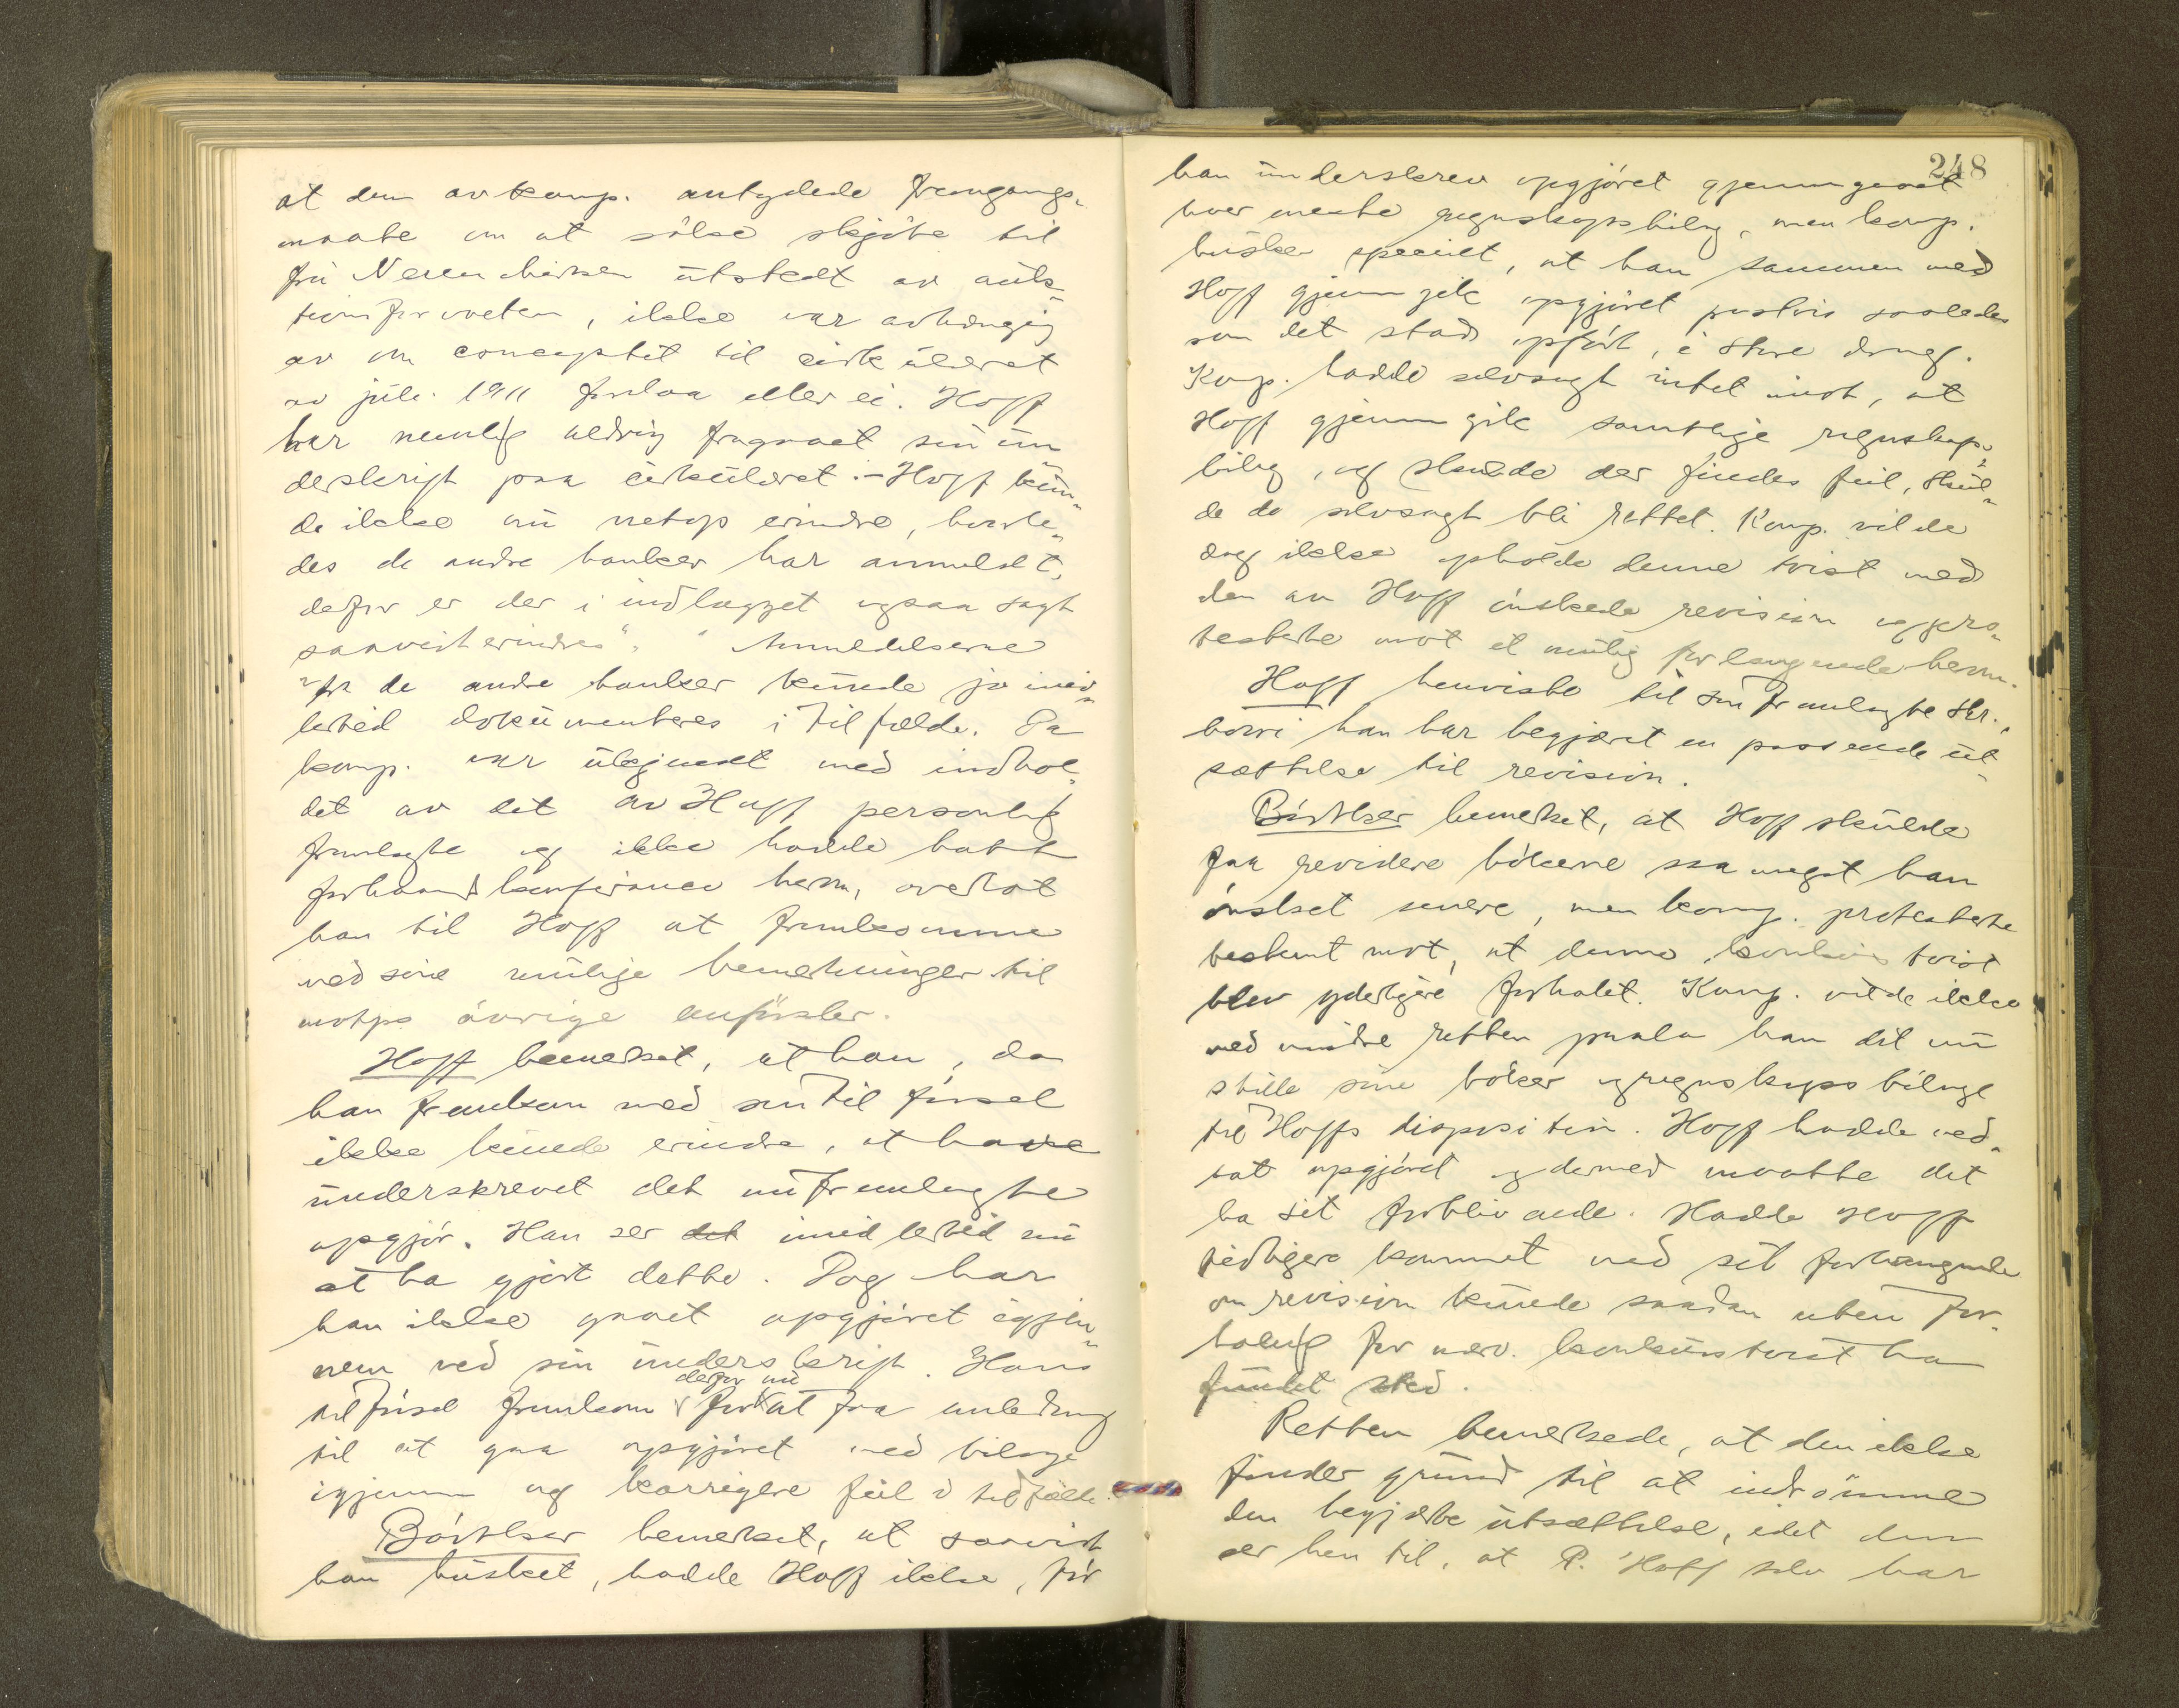 at den av komp. antydede fremgangs-
maate om at söke skjöte til
fru Neven utstedt av auk-
tionsforvalteren, ikke var avhængig
av om conceptet til cirkulæret
av juli 1911 forelaa eller ei. Hoff
har nemlig aldrig fragaaet sin un
derskrift paa cirkulæret. – Hoff kun-
de ikke nu netop erindre, hvorle-
des de andre banker har anmeldt,
derfor er der i indlægget ogsaa sagt
saavidt erindres". "Anmeldelserne
"fra de andre banker kunde jo imid-
lertid dokumenteres i tilfælde. Da
komp. var ukjendt med indhol-
det av det av Hoff personlig
fremlagte og ikke hadde hatt
forhaandskonferance herom, overlot
han til Hoff at fremkomme
med sine mulige bemerkninger til
motps övrige anförsler.
Hoff bemerket, at han, da
han fremkom med sin tilförsel
ikke kunde erindre, at have
underskrevet det nu fremlagte
opgjör. Han ser det imidlertid nu
at ha gjort dette. Dog har
han ikke gaaet opgjöret igjen-
nem ved sin underskrift. Hans
derfor nu
tilförsel fremkom for at faa anledning
til at gaa opgjöret med bilage
igjennem og korrigere feil i tilfælde.
Bödtker bemerket, at saavidt
han husket, hadde Hoff ikke, för
248
han underskrev opgjöret gjennemgaaet
hver eneste regnskapsbilag, men komp.
husker specielt, at han sammen med
Hoff gjennemgik opgjöret postvis saaledes
som det stod opfört, i store drag.
Komp. hadde selvsagt intet imot, at
Hoff gjennemgik samtlige regnskaps-
bilag, og skulde der findes feil, skul-
de de selvsagt bli rettet. Komp. vilde
dog ikke opholde denne tvist med
den av Hoff önskede revision og pro-
testerte mot et mulig forlangende herom.
Hoff henviste til sin fremlagte skr.,
hvori han har begjæret en passende ut-
sættelse til revision.
Bödtker bemerket, at Hoff skulde
faa revidere bökerne saa meget han
önsket senere, men komp. protesterte
bestemt mot, at denne konkurs tvist
blev yderligere forhalet. Komp. vilde ikke
med mindre retten paala ham det nu
stille sine böker og regnskaps bilage
til Hoffs disposition. Hoff hadde ved-
tat opgjöret og dermed maatte det
ha sit forblivende. Hadde Hoff
tidligere kommet med sit forlangende
om revision kunde saadan uten for-
haling for nærv. konkurstvist ha
fundet sted.
Retten bemerkede, at den ikke
finder grund til at indrömme
den begjærte utsættelse, idet den
ser hen til, at P. Hoff selv har